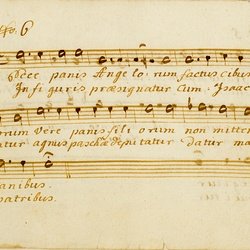 No. 6
Ecce panis Ange lo rum factus cibus
In fi guris præsignatur Cum Isaac
orum Vere panis fili orum non mitten
atur agnus paschæ deputatur datur ma
anibus.
patribus.